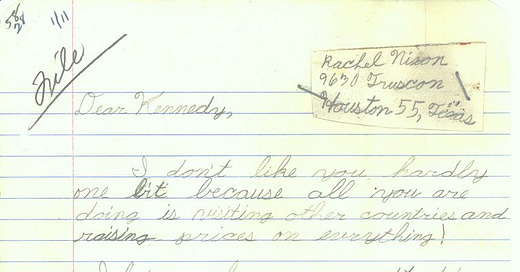 58
28
1/11
File
Rachel Nixon
9630 Truscon
Houston 55, Texas
Dear Kennedy,
I don't like you hardly
one bit because all you are
doing is visiting other countries and
raising prices on everything!